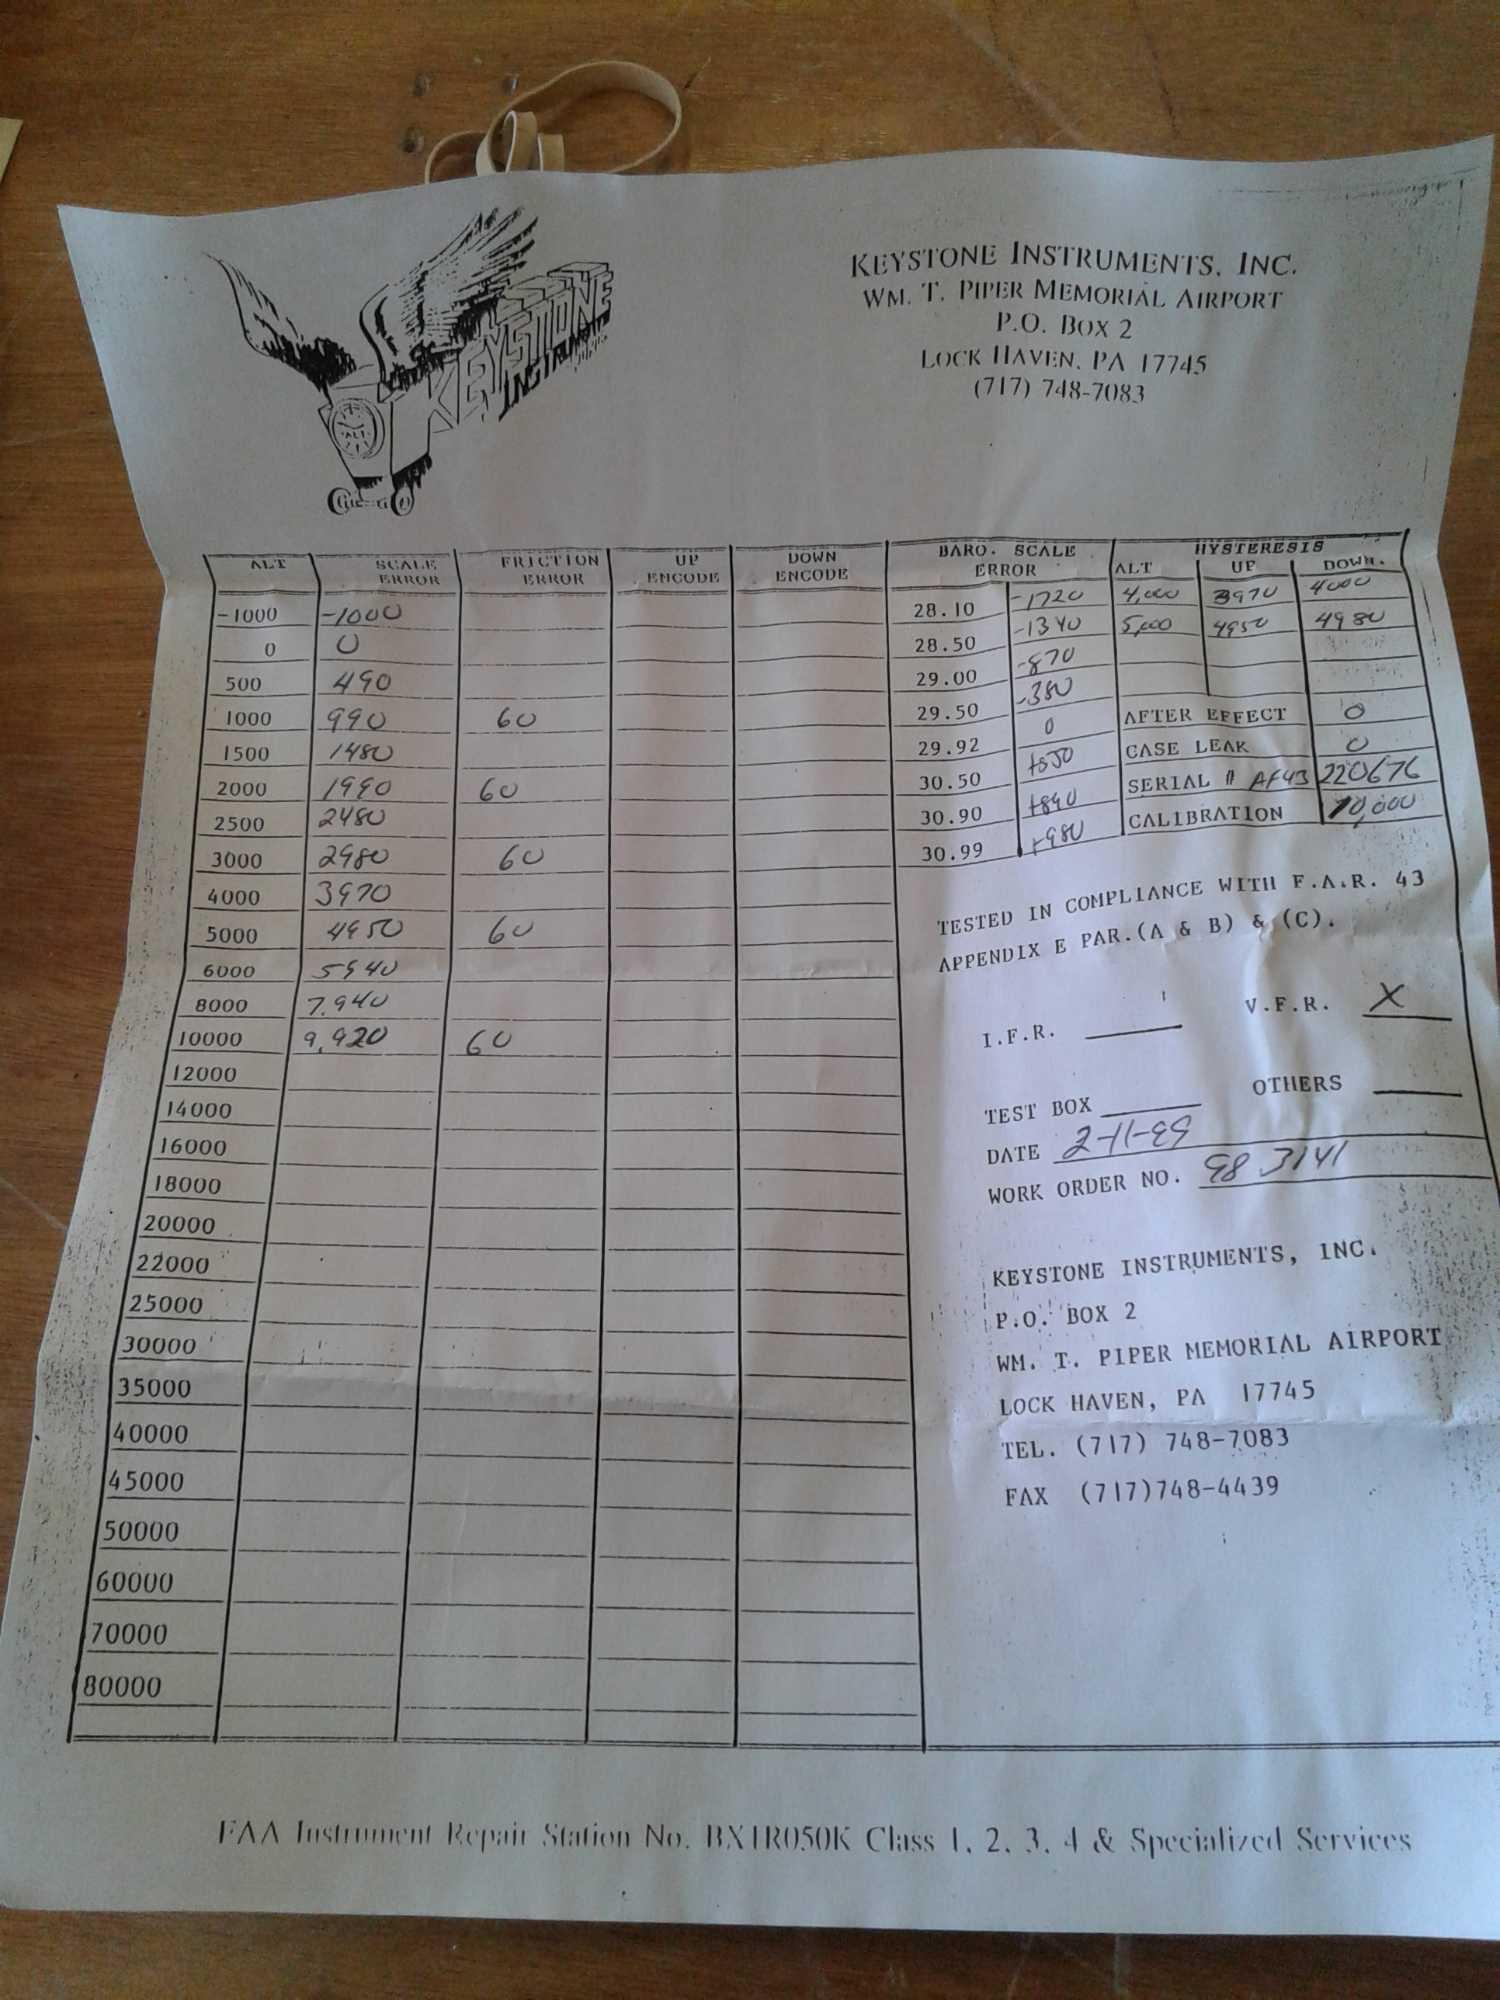 KEYSTONE INSTRUMENTS
ALT.
KEYSTONE INSTRUMENTS, INC.
WM. T. PIPER MEMORIAL AIRPORT
P.O. BOX 2
LOCK HAVEN, PA 17745
(717) 748-7083
ALT SCALE ERROR FRICTION ERROR UP ENCODE DOWN ENCODE
-1000 -1000
0 0
500 490
1000 990 60
1500 1480
2000 1990 60
2500 2480
3000 2980 60
4000 3970
5000 4950 60
6000 5940
8000 7,940
10000 9,920 60
12000
14000
16000
18000
20000
22000
25000
30000
35000
40000
45000
50000
60000
70000
80000
BARO. SCALE ERROR
28.10 -1720
28.50 -1340
29.00 -870
29.50 -380
29.92 0
30.50
30.90 +890
30.99 +980
HYSTERESIS
ALT UP DOWN.
4,000 3970 4000
5,000 4950 4980
AFTER EFFECT 0
CASE LEAK 0
SERIAL # AF43 220676
CALIBRATION 10,000
TESTED IN COMPLIANCE WITH F.A.R. 43
APPENDIX E PAR.(A & B) & (C).
I.F.R. V.F.R. X
TEST BOX OTHERS
DATE 2-11-99
WORK ORDER NO. 98 3141
KEYSTONE INSTRUMENTS, INC.
P.O. BOX 2
WM. T. PIPER MEMORIAL AIRPORT
LOCK HAVEN, PA 17745
TEL. (717) 748-7083
FAX (717)748-4439
FAA Instrument Repair Station No. BX1R050K Class 1, 2, 3, 4 & Specialized Services